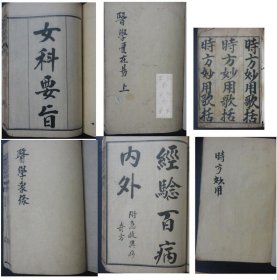 女科要旨
醫學實在易 上
時方妙用歌括
時方妙用歌括
時方妙用歌括
醫學
經驗百病
內外
附急救異痧
奇方
時方妙用